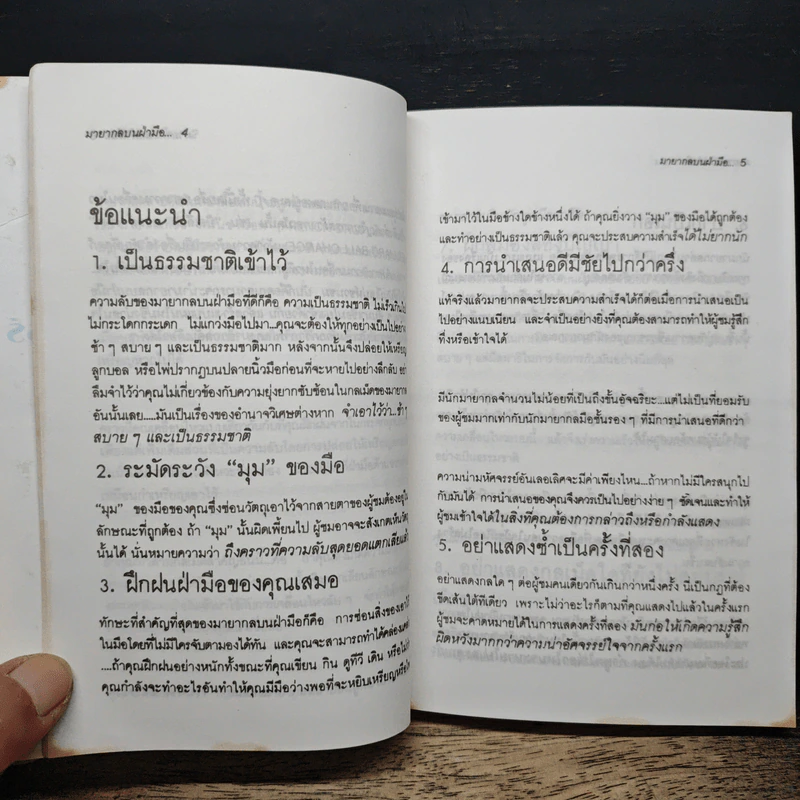 มายากลบนฝ่ามือ... 4
ข้อแนะนำ
1. เป็นธรรมชาติเข้าไว้
ความลับของมายากลบนฝ่ามือที่ดีก็คือ ความเป็นธรรมชาติ ไม่เร็วเกินไป
ไม่กระโดกกระเดก ไม่แกว่งมือไปมา...คุณจะต้องให้ทุกอย่างเป็นไปอย่าง
ช้า ๆ สบาย ๆ และเป็นธรรมชาติมาก หลังจากนั้นจึงปล่อยให้เหรียญ
ลูกบอล หรือไพ่ปรากฏบนปลายนิ้วมือก่อนที่จะหายไปอย่างลึกลับ อย่า
ลืมจำไว้ว่าคุณไม่เกี่ยวข้องกับความยุ่งยากซับซ้อนในกลเม็ดของมายากล
อันนั้นเลย....มันเป็นเรื่องของอำนาจวิเศษต่างหาก จำเอาไว้ว่า..ช้า ๆ
สบาย ๆ และเป็นธรรมชาติ
2. ระมัดระวัง “มุม” ของมือ
“มุม” ของมือของคุณซึ่งซ่อนวัตถุเอาไว้จากสายตาของผู้ชมต้องอยู่ใน
ลักษณะที่ถูกต้อง ถ้า “มุม” นั้นผิดเพี้ยนไป ผู้ชมอาจจะสังเกตเห็นวัตถุ
นั้นได้ นั่นหมายความว่า ถึงคราวที่ความลับสุดยอดแตกเสียแล้ว
3. ฝึกฝนฝ่ามือของคุณเสมอ
ทักษะที่สำคัญที่สุดของมายากลบนฝ่ามือก็คือ การซ่อนสิ่งของเอาไว้
ในมือโดยที่ไม่มีใครจับตามองได้ทัน และคุณจะสามารถทำได้คล่อง
....ถ้าคุณฝึกฝนอย่างหนักทั้งขณะที่คุณเขียน กิน ดูทีวี เดิน หรือไม่ว่า
คุณกำลังจะทำอะไรอันทำให้คุณมีมือว่างพอที่จะหยิบเหรียญหรือ
มายากลบนฝ่ามือ... 5
เข้ามาไว้ในมือข้างใดข้างหนึ่งได้ ถ้าคุณยิ่งวาง “มุม” ของมือได้ถูกต้อง
และทำอย่างเป็นธรรมชาติแล้ว คุณจะประสบความสำเร็จได้ไม่ยากนัก
4. การนำเสนอดีมีชัยไปกว่าครึ่ง
แท้จริงแล้วมายากลจะประสบความสำเร็จได้ก็ต่อเมื่อการนำเสนอเป็น
ไปอย่างแนบเนียน และจำเป็นอย่างยิ่งที่คุณต้องสามารถทำให้ผู้ชมรู้สึก
ทึ่งหรือเข้าใจได้
มีนักมายากลจำนวนไม่น้อยที่เป็นถึงชั้นอัจฉริยะ...แต่ไม่เป็นที่ยอมรับ
ของผู้ชมมากเท่ากับนักมายากลมือชั้นรอง ๆ ที่มีการนำเสนอที่ดีกว่า
ความน่ามหัศจรรย์อันเลอเลิศจะมีค่าเพียงไหน...ถ้าหากไม่มีใครสนุกไป
กับมันได้ การนำเสนอของคุณจึงควรเป็นไปอย่างง่ายๆ ชัดเจนและทำให้
ผู้ชมเข้าใจได้ในสิ่งที่คุณต้องการกล่าวถึงหรือกำลังแสดง
5. อย่าแสดงซ้ำเป็นครั้งที่สอง
อย่าแสดงกลใด ๆ ต่อผู้ชมคนเดียวกันเกินกว่าหนึ่งครั้ง นี่เป็นกฎที่ต้อง
ขีดเส้นใต้ทีเดียว เพราะไม่ว่าอะไรก็ตามที่คุณแสดงไปแล้วในครั้งแรก
ผู้ชมจะคาดหมายได้ในการแสดงครั้งที่สอง มันก่อให้เกิดความรู้สึก
ผิดหวังมากกว่าความน่าอัศจรรย์ใจจากครั้งแรก